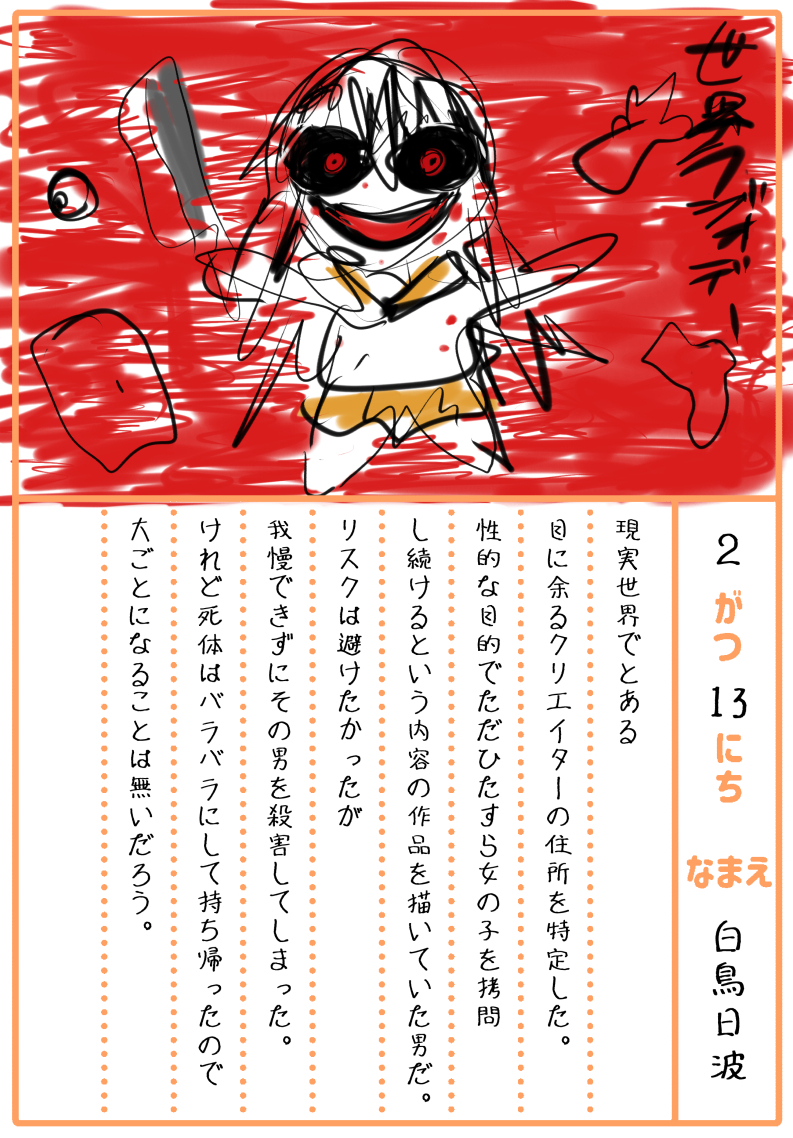 世界ラジオデー
2がつ13にち なまえ 白鳥日波
現実世界でとある
目に余るクリエイターの住所を特定した。
性的な目的でただひたすら女の子を拷問
し続けるという内容の作品を描いていた男だ。
リスクは避けたかったが
我慢できずにその男を殺害してしまった。
けれど死体はバラバラにして持ち帰ったので
大ごとになることは無いだろう。